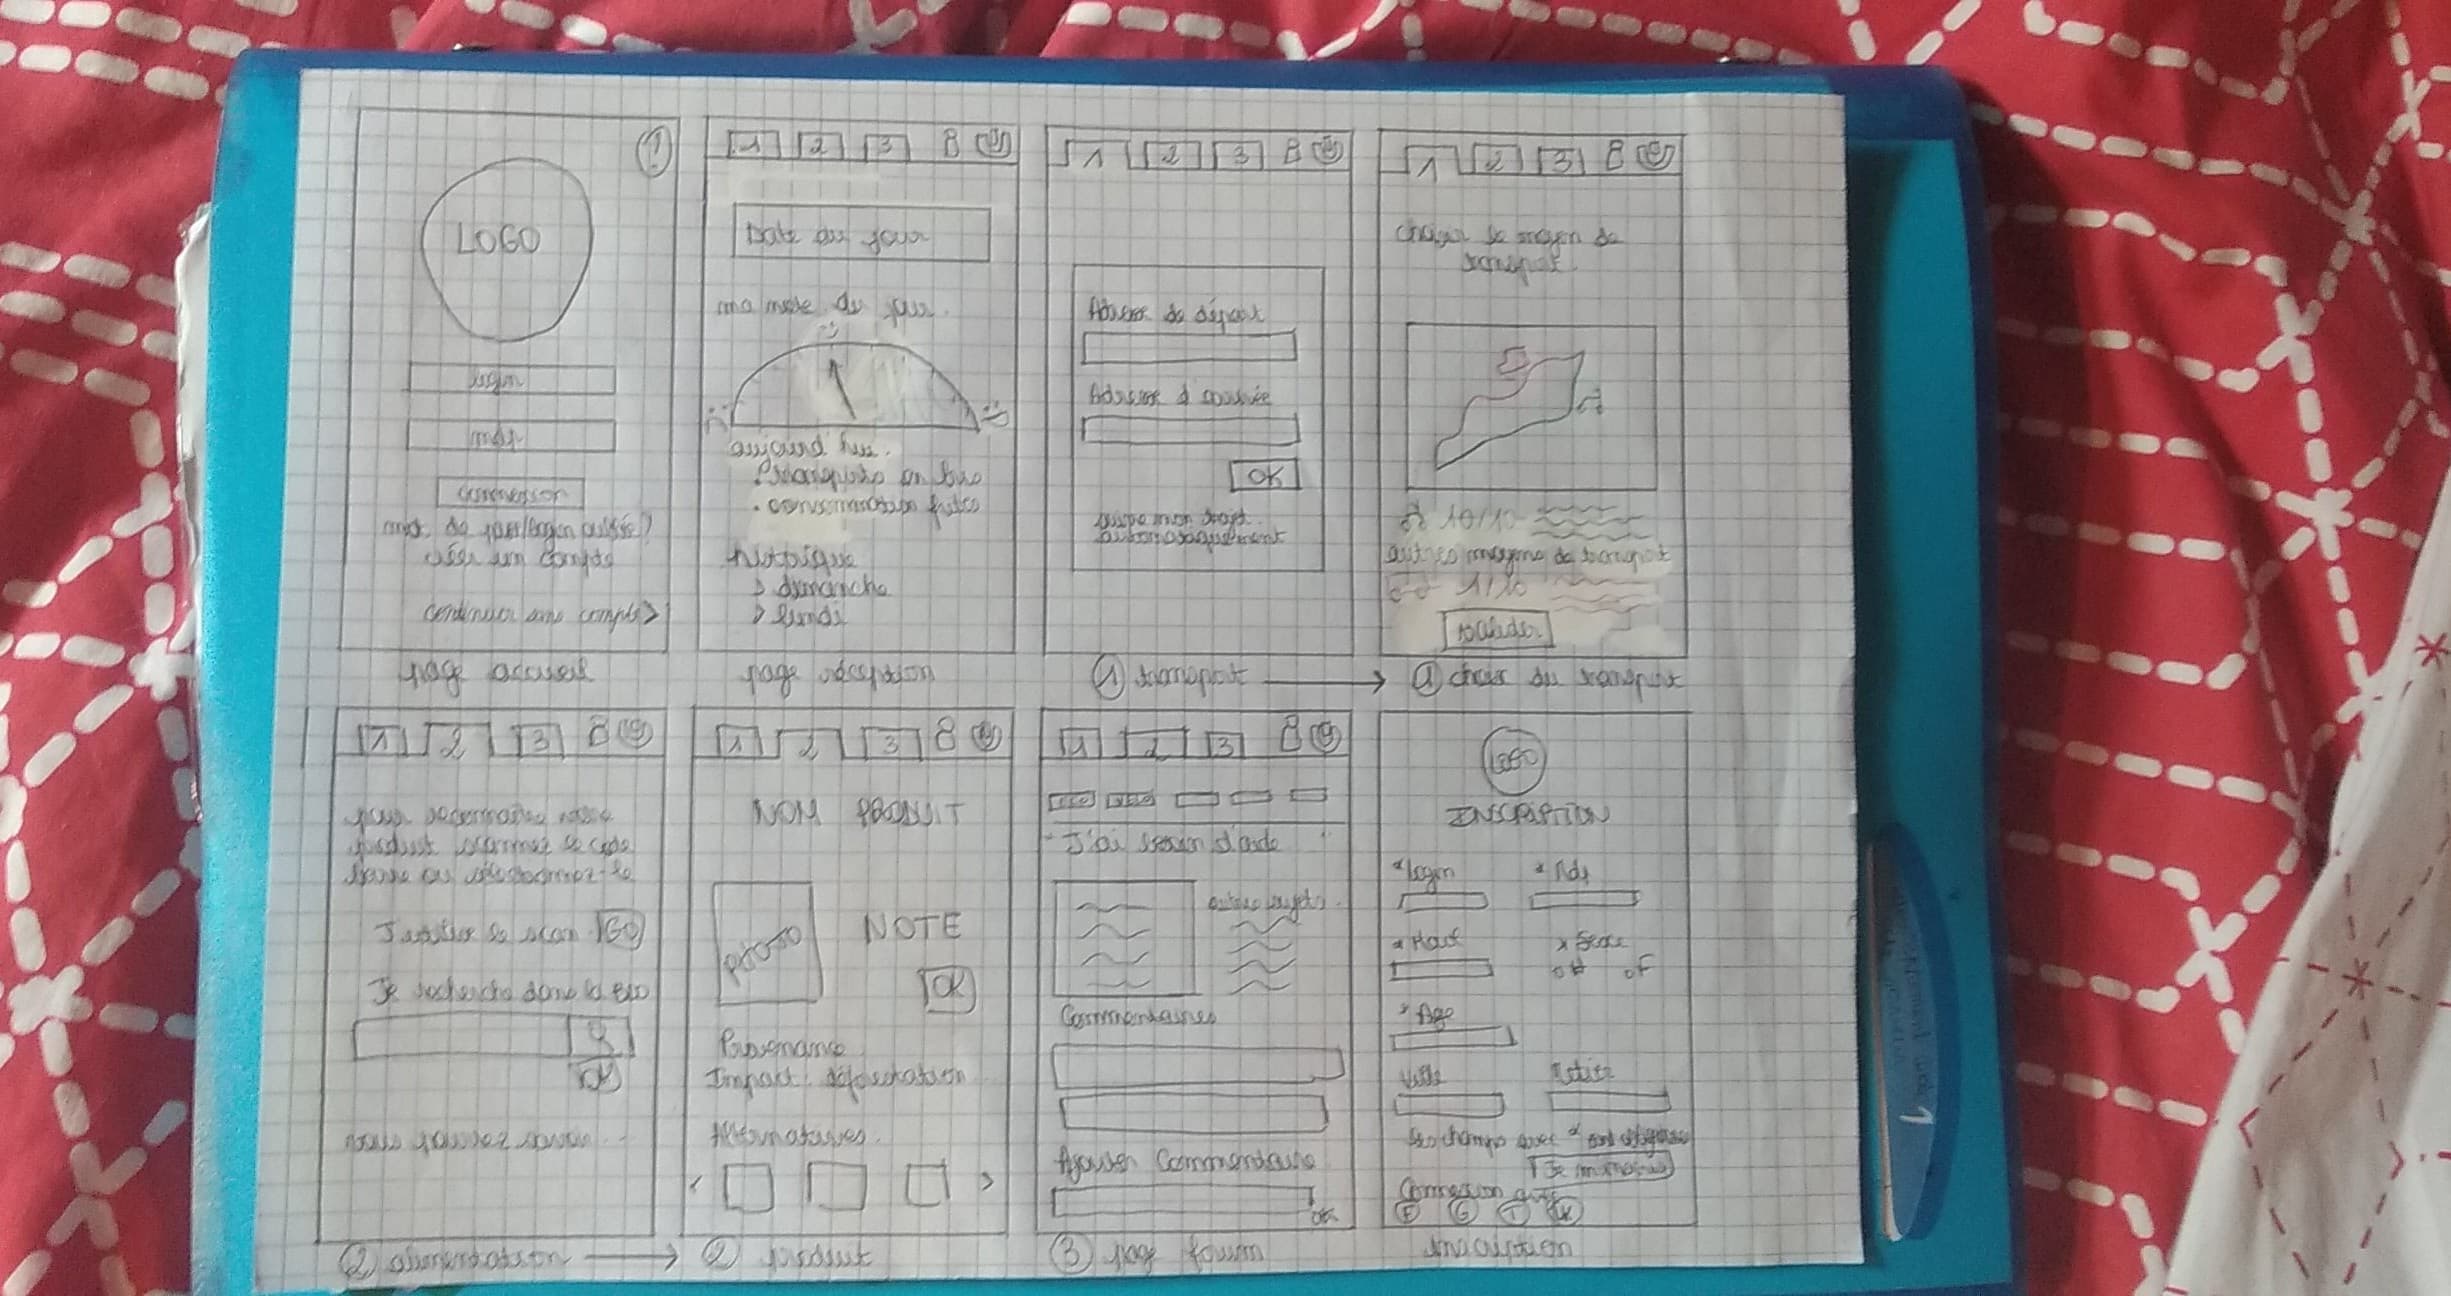 LOGO
login
mdp
connexion
mot de passe/login oublié?
créer un compte
continuer sans compte >
page accueil
1 2 3
Date du jour
ma note du jour
aujourd'hui.
. transports en bus
. consommation frites
historique
> dimanche
> lundi
page réception
1 2 3
Adresse de départ
Adresse d'arrivée
OK
suivre mon trajet
automatiquement
① transport
1 2 3
choisir le moyen de
transport.
10/10
autres moyens de transport
1/10
Valider
① choix du transport
1 2 3
pour reconnaître votre
produit scannez le code
barre ou
J'utilise le scan GO
Je recherche dans la BDD
OK
vous pouvez
② alimentation
1 2 3
NOM PRODUIT
PHOTO
NOTE
OK
Provenance
Impact : déforestation
Alternatives.
< >
② produit
1 2 3
"J'ai besoin d'aide"
autres sujets.
Commentaires
Ajouter Commentaire
OK
③ page forum
LOGO
INSCRIPTION
* login * Mdp
* Mail * Sexe
o H o F
* Age
Ville
les champs avec * sont obligatoires
Je m'inscris
Connexion avec
F G T
inscription